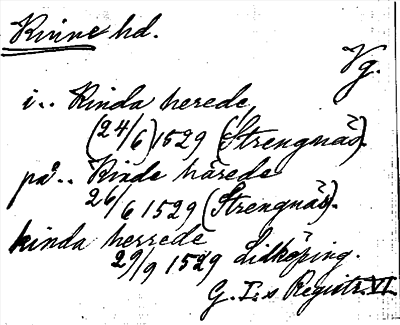 Kinne hd.
Vg.
i.. Kinda herede
(24/6) 1529 (Strengnäs).
på.. Kinde härede
26/6 1529 (Strengnäs).
kinda herrede
29/9 1529 Lidköping.
G. I:s Registr. VI